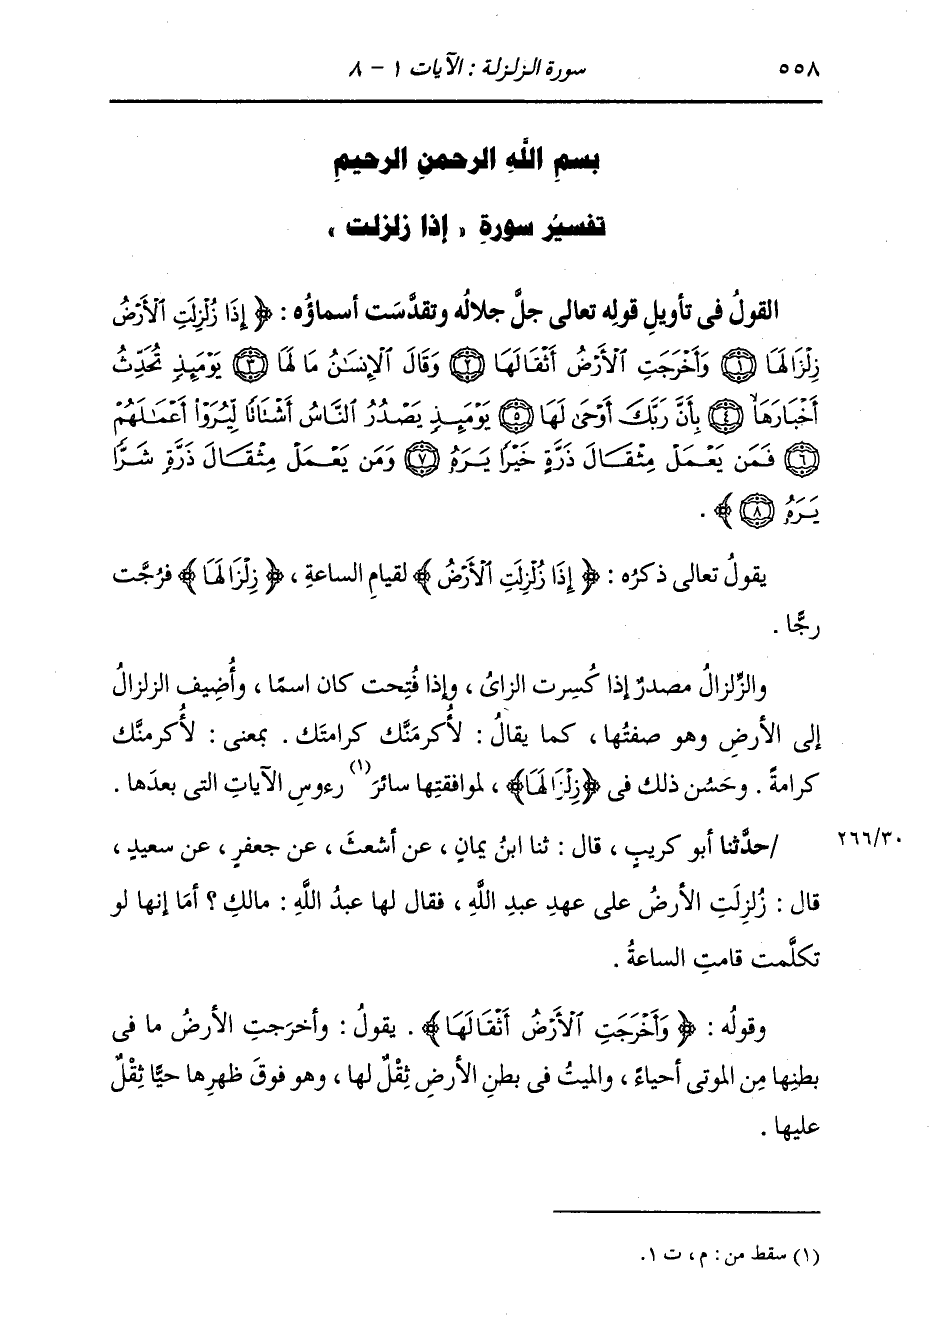 ٥٥٨ سورة الزلزلة : الآيات ١ - ٨
بسمِ اللَّهِ الرحمنِ الرحيمِ
تفسيرُ سورةِ « إذا زلزلت »
القولُ فى تأويلِ قولِه تعالى جلَّ جلالُه وتقدَّسَت أسماؤُه : ﴿ إِذَا زُلْزِلَتِ ٱلْأَرْضُ
زِلْزَالَهَا ﴿١﴾ وَأَخْرَجَتِ ٱلْأَرْضُ أَثْقَالَهَا ﴿٢﴾ وَقَالَ ٱلْإِنسَٰنُ مَا لَهَا ﴿٣﴾ يَوْمَئِذٍ تُحَدِّثُ
أَخْبَارَهَا ﴿٤﴾ بِأَنَّ رَبَّكَ أَوْحَىٰ لَهَا ﴿٥﴾ يَوْمَئِذٍ يَصْدُرُ ٱلنَّاسُ أَشْتَاتًا لِّيُرَوْا۟ أَعْمَٰلَهُمْ
﴿٦﴾ فَمَن يَعْمَلْ مِثْقَالَ ذَرَّةٍ خَيْرًا يَرَهُۥ ﴿٧﴾ وَمَن يَعْمَلْ مِثْقَالَ ذَرَّةٍ شَرًّا
يَرَهُۥ ﴿٨﴾ ﴾ .
يقولُ تعالى ذكرُه : ﴿ إِذَا زُلْزِلَتِ ٱلْأَرْضُ ﴾ لقيامِ الساعةِ ، ﴿ زِلْزَالَهَا ﴾ فرُجَّت
رجًّا .
والزِّلزالُ مصدرٌ إذا كُسِرت الزاىُ ، وإذا فُتِحت كان اسمًا ، وأُضِيف الزلزالُ
إلى الأرضِ وهو صفتُها ، كما يقالُ : لأُكرمَنَّك كرامتَك . بمعنى : لأُكرمنَّك
كرامةً . وحَسُن ذلك فى ﴿ زِلْزَالَهَا ﴾ ، لموافقتِها سائرَ (١) رءوسِ الآياتِ التى بعدَها .
٢٦٦/٣٠ /حدَّثنا أبو كريبٍ ، قال : ثنا ابنُ يمانٍ ، عن أشعثَ ، عن جعفرٍ ، عن سعيدٍ ،
قال : زُلزِلَتِ الأرضُ على عهدِ عبدِ اللَّهِ ، فقال لها عبدُ اللَّهِ : مالكِ ؟ أمَا إنها لو
تكلَّمت قامتِ الساعةُ .
وقولُه : ﴿ وَأَخْرَجَتِ ٱلْأَرْضُ أَثْقَالَهَا ﴾ . يقولُ : وأخرَجتِ الأرضُ ما فى
بطنِها مِن الموتى أحياءً ، والميتُ فى بطنِ الأرضِ ثِقْلٌ لها ، وهو فوقَ ظهرِها حيًّا ثِقْلٌ
عليها .
(١) سقط من : م ، ت ١ .